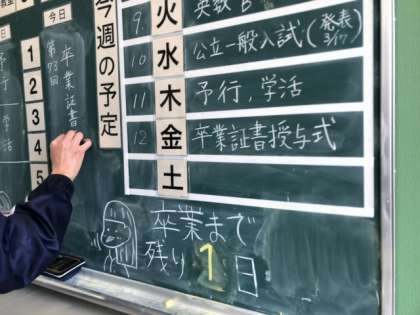 今日
今週の予定
火
水
木
金
土
9
英数B
10
公立一般入試(発表3/17)
11
予行,学活
12
卒業証書授与式
1
2
3
4
5
第73回
卒業証書
予行
学活
卒業まで
残り1日